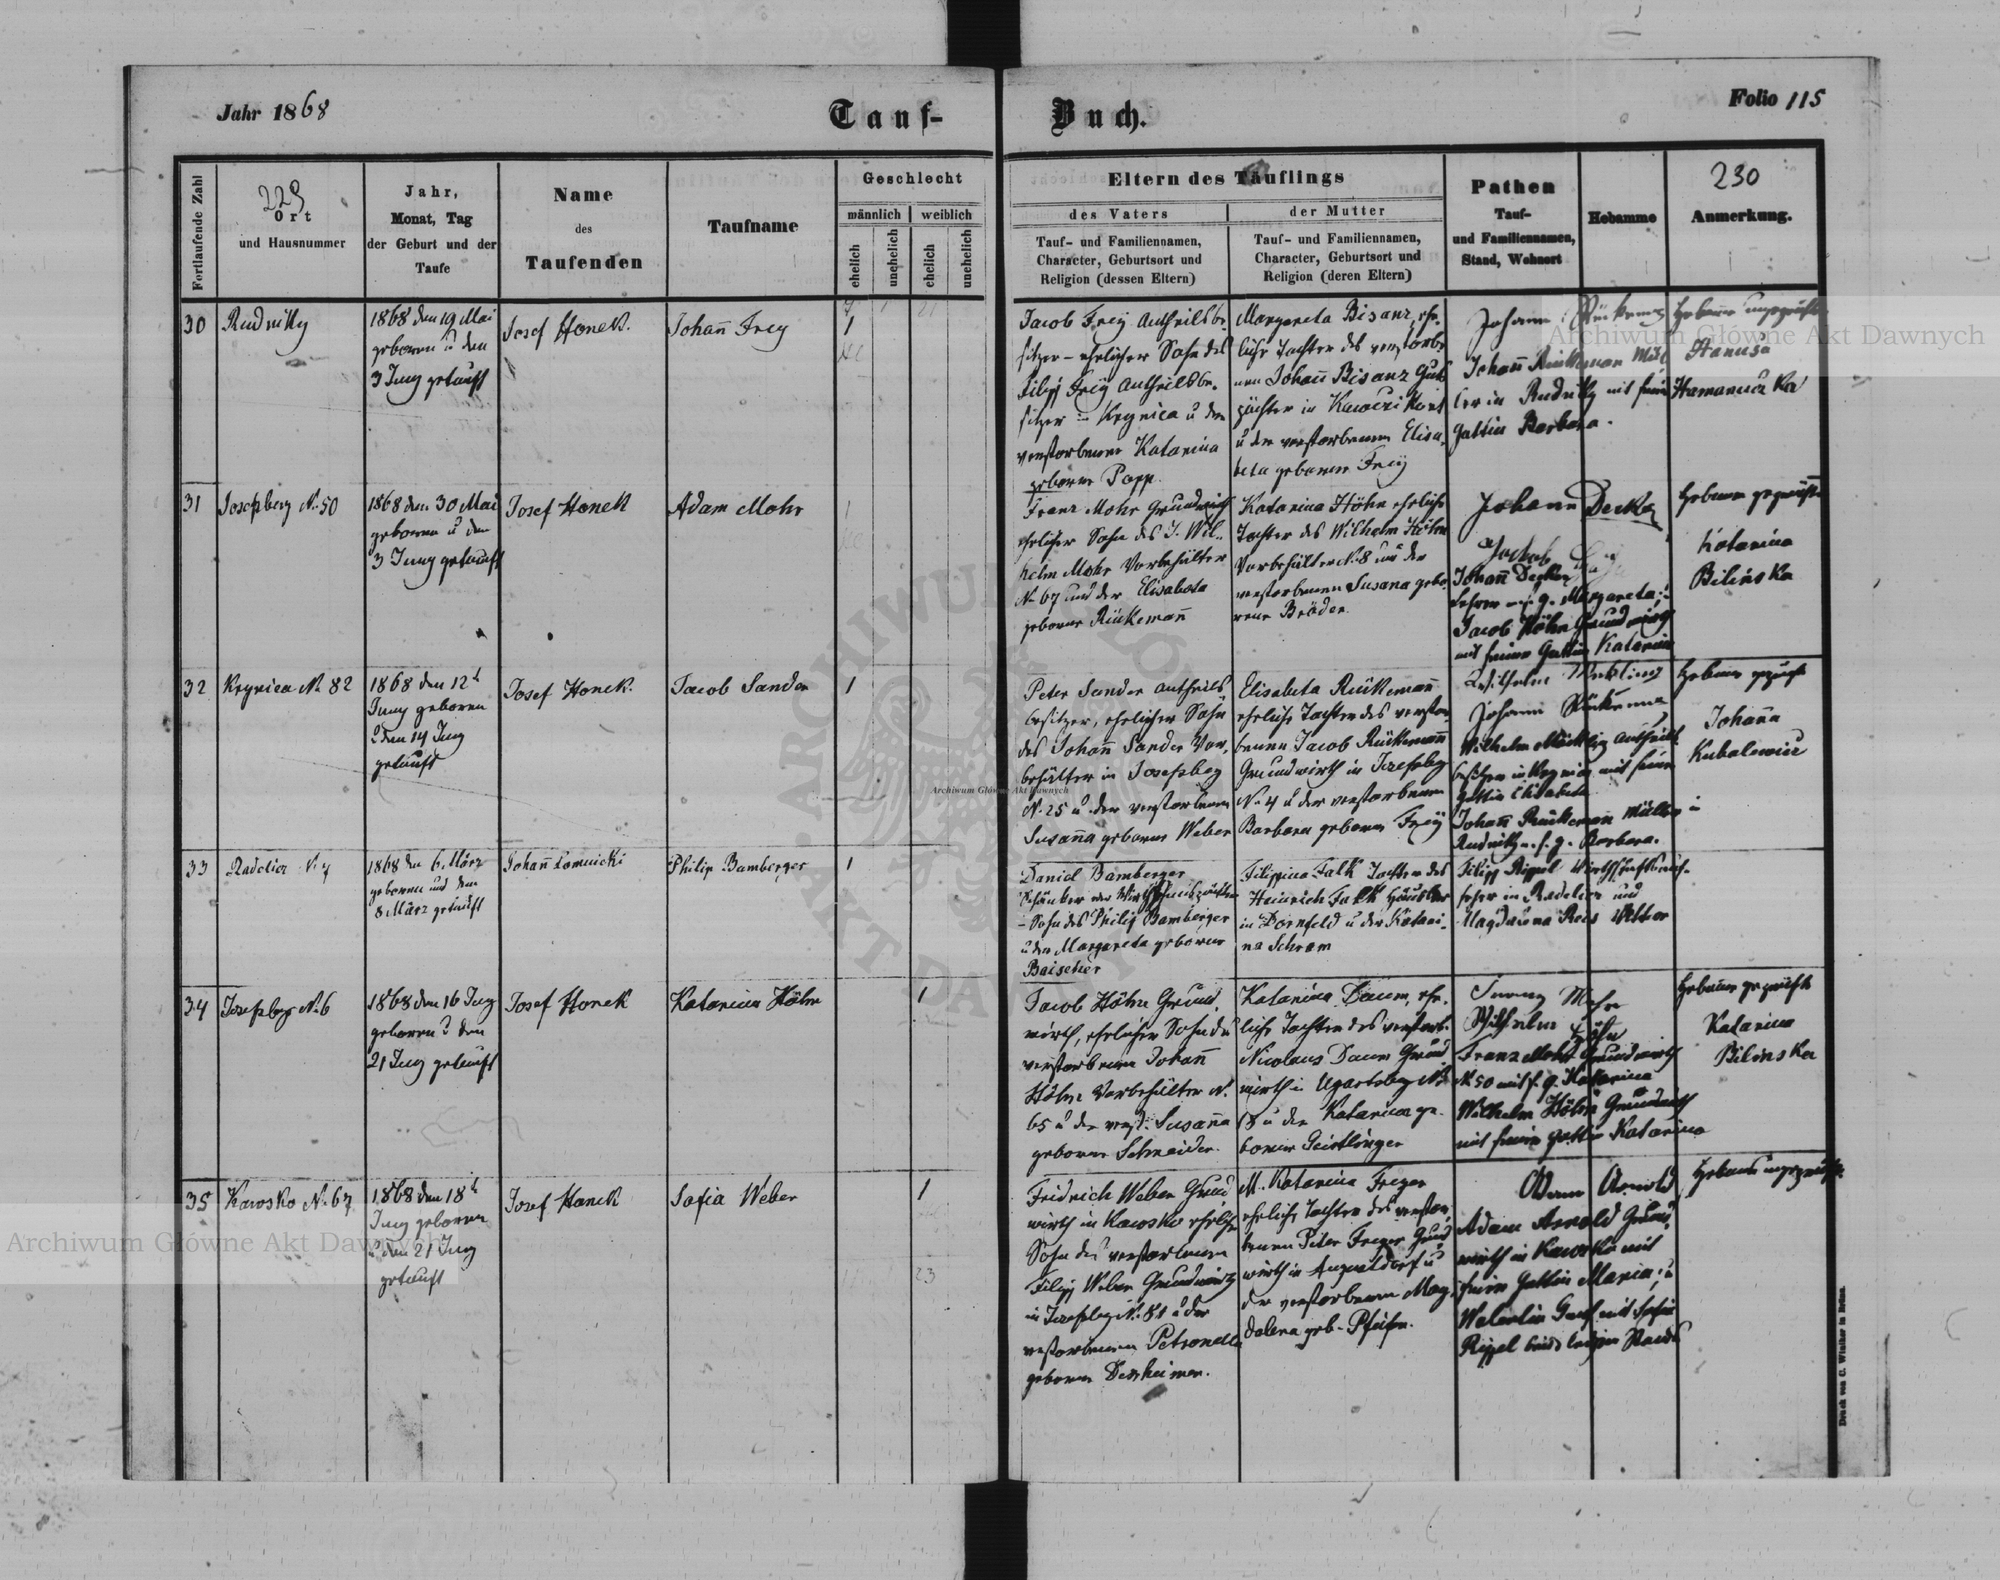 Jahr 1868
Tauf-
Buch.
Folio 115
Fortlaufende Zahl
229
Ort
und Hausnummer
Jahr,
Monat, Tag
der Geburt und der
Taufe
Name
des
Taufenden
Taufname
Geschlecht
männlich
weiblich
ehelich
unehelich
ehelich
unehelich
Eltern des Täuflings
des Vaters
der Mutter
Tauf- und Familiennamen,
Character, Geburtsort und
Religion (dessen Eltern)
Tauf- und Familiennamen,
Character, Geburtsort und
Religion (deren Eltern)
Pathen
Tauf-
und Familiennamen,
Stand, Wohnort
Hebamme
230
Anmerkung.
30
Rudniky
1868 den 19 Mai
geboren u den
3 Juny getauft
Josef Honek.
Johann Frey
1
Jacob Frey Antheilsbe
sitzer - ehelicher Sohn des
Filipp Frey Antheilsbe.
sitzer in Krynica u der
verstorbenen Katarina
geborne Popp.
Margareta Bisanz, ehe.
liche Tochter des verstorbe
nen Johann Bisanz Guts
pächter in
u der verstorbenen Elisa,
beta geborene Frey
Johann
Johann Rückeman Mül
ler in Rudniky mit seiner
Gattin Barbara.
Hebamme ungeprüfte
Hanusa
31
Josefsberg No 50
1868 den 30 Mai
geboren u den
3 Juny getauft
Josef Honek
Adam Mohr
1
Franz Mohr Grundwirth
ehelicher Sohn des J. Wil-
helm Mohr Vorbehälter
No 67 und der Elisabeta
geborne Rückemann
Katarina Höhn eheliche
Tochter des Wilhelm Höhn
Vorbehälter No 8 und der
verstorbenen Susana gebo.
rene Bröder.
Johann Decker
Johann Decker
Lehrer Margareta;
Jacob Höhn Grundwirth
mit seiner Gattin Katarina
Hebamme geprüfte
Katarina
Bilinska
32
Krynica No 82
1868 den 12t
Juny geboren
u den 14 Juny
getauft
Josef Honek.
Jacob Sander
1
Peter Sander Antheils
besitzer, ehelicher Sohn
des Johann Sander Vor,
behälter in Josefsberg
No 25 u der verstorbenen
Susanna geborne Weber
Elisabeta Rückemann
eheliche Tochter des verstor
benen Jacob Rückemann
Grundwirth in Josefsberg
No 4 u der verstorbenen
Barbara geborne Frey
Wilhelm
Johann
Wilhelm Antheils
besitzer in Krynica mit seiner
Gattin Elisabeta
Johann Rückeman Müller in
Rudniky m. s. g. Barbara.
Hebamme geprüft
Johanna
Kubalewicz
33
Radelicz No 7
1868 den 6. März
geboren und den
8 März getauft
Johann Lomnicki
Philip Bamberger
1
Daniel Bamberger
- Sohn des Philip Bamberger
u der Margareta geborene
Baischer
Filippina Falk Tochter des
Heinrich Falk Häusler
in Dornfeld u der Katari-
na Schram
Filipp Rippel
in Radelicz und
Magdalena
34
Josefsberg No 6
1868 den 16 Juny
geboren u den
21 Juny getauft
Josef Honek
Katarina Höhn
1
Jacob Höhn Grund,
wirth, ehelicher Sohn des
verstorbenen Johann
Höhn Vorbehälter No
65 u der verst: Susanna
geborne Schneider.
Katarina Daum, ehe.
liche Tochter des verstorb.
Nicolaus Daum Grund
wirth in Ugartsberg No
18 u der Katarina ge-
borne Geistlinger
Franz Mohr
Wilhelm Höhn
Franz Mohr Grundwirth
No 50 mit s. g. Katarina
Wilhelm Höhn Grundwirth
mit seiner Gattin Katarina
Hebamme geprüfte
Katarina
Bilinska
35
Kawsko No 67
1868 den 18t
Juny geboren
u den 21 Juny
getauft
Josef Honek
Sofia Weber
1
23
Fridrich Weber Grund
wirth in Kawsko ehelicher
Sohn des verstorbenen
Filipp Weber Grundwirth
in Josefsberg No 81 u der
verstorbenen Petronella
geborne Dersheimer.
M. Katarina Freger
eheliche Tochter des verstor,
benen Peter Freger Grund
wirth in Augustdorf u
der verstorbenen Mag,
dalena geb. Pfeifer.
Adam Arnold
Adam Arnold Grund,
wirth in Kawsko mit
seiner Gattin Maria; u
Walentin Graf mit Sofia
Rippel beide ledigen Standes
Hebamme ungeprüfte
Druck von C. Winiker in Brünn.
Archiwum Główne Akt Dawnych
Archiwum Główne Akt Dawnych
Archiwum Główne Akt Dawnych